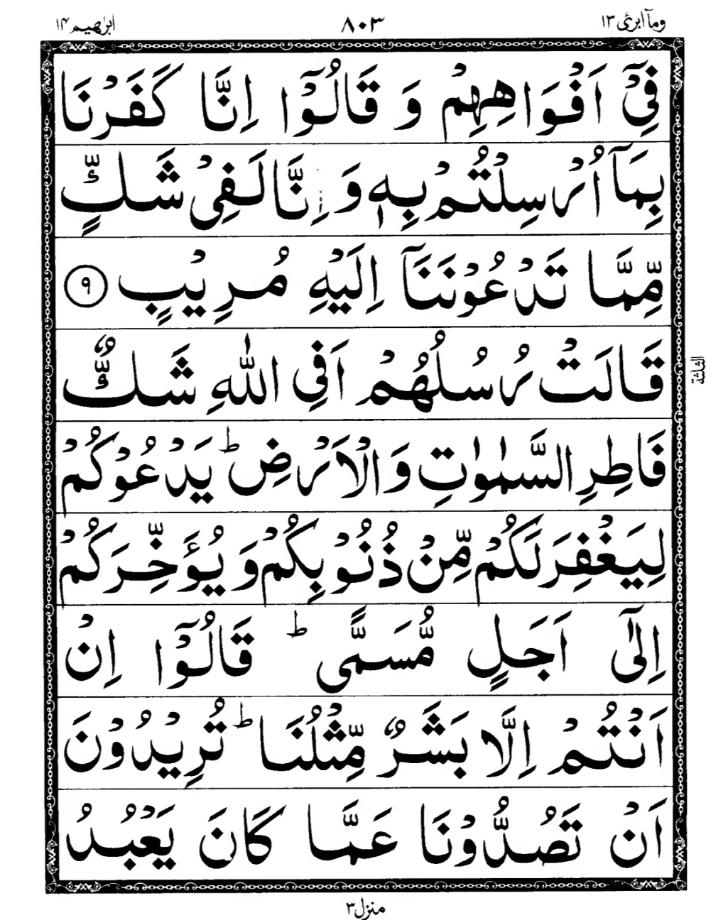 وماۤ ابرئ ١٣ ٨٠٣ ابرٰهيم ١٤
فِىْۤ اَفْوَاهِهِمْ وَ قَالُوْۤا اِنَّا كَفَرْنَا
بِمَاۤ اُرْسِلْتُمْ بِهٖ وَ اِنَّا لَفِىْ شَكٍّ
مِّمَّا تَدْعُوْنَنَاۤ اِلَيْهِ مُرِيْبٍ ۹
قَالَتْ رُسُلُهُمْ اَفِى اللّٰهِ شَكٌّ
فَاطِرِ السَّمٰوٰتِ وَالْاَرْضِ ؕ يَدْعُوْكُمْ
لِيَغْفِرَ لَكُمْ مِّنْ ذُنُوْبِكُمْ وَ يُؤَخِّرَكُمْ
اِلٰٓى اَجَلٍ مُّسَمًّى ؕ قَالُوْۤا اِنْ
اَنْتُمْ اِلَّا بَشَرٌ مِّثْلُنَا ؕ تُرِيْدُوْنَ
اَنْ تَصُدُّوْنَا عَمَّا كَانَ يَعْبُدُ
الثلثة
منزل ٣